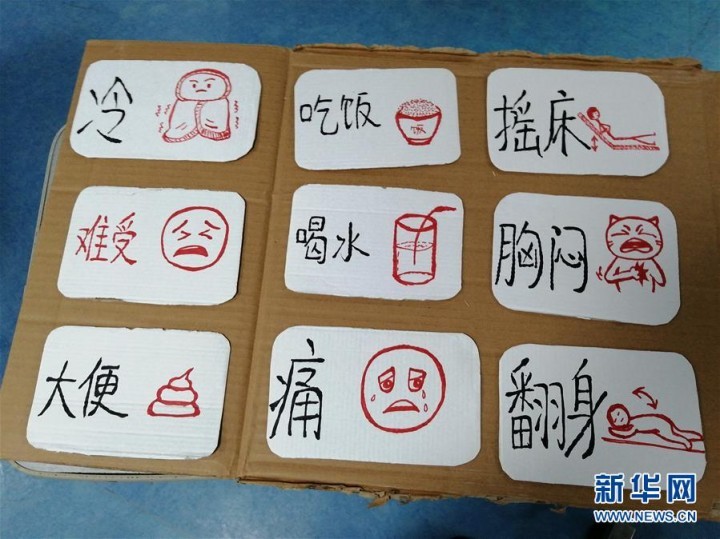 冷
吃饭
摇床
难受
喝水
胸闷
大便
痛
翻身
新华网
WWW.NEWS.CN